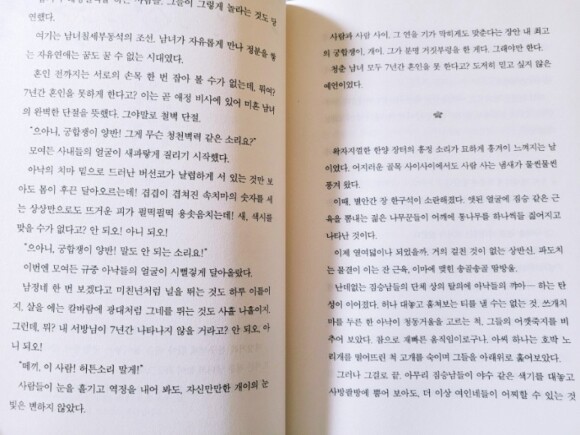 연했다.
여기는 남녀칠세부동석의 조선. 남녀가 자유롭게 만나 정분을 쌓
는 자유연애는 꿈도 꿀 수 없는 시대였다.
혼인 전까지는 서로의 손목 한 번 잡아 볼 수가 없는데, 뭐여?
7년간 혼인을 못하게 한다고? 이는 곧 애정 비사에 있어 미혼 남녀
의 완벽한 단절을 뜻했다. 그야말로 철벽 단절.
“으아니, 궁합쟁이 양반! 그게 무슨 청천벽력 같은 소리요?”
모여든 사내들의 얼굴이 새파랗게 질리기 시작했다.
아낙의 치마 밑으로 드러난 버선코가 날렵하게 서 있는 것만 보
아도 몸이 후끈 달아오르는데! 겹겹이 겹쳐진 속치마의 숫자를 세
는 상상만으로도 뜨거운 피가 펄떡펄떡 용솟음치는데! 새, 색시를
맞을 수가 없다고? 안 되오! 아니 되오!
“으아니, 궁합쟁이 양반! 말도 안 되는 소리요!”
이번엔 모여든 규중 아낙들의 얼굴이 시뻘겋게 달아올랐다.
남정네 한 번 보겠다고 미친년처럼 널을 뛰는 것도 하루 이틀이
지, 살을 에는 칼바람에 광대처럼 그네를 뛰는 것도 사흘 나흘이지.
그런데, 뭐? 내 서방님이 7년간 나타나지 않을 거라고? 안 되오, 아
니 되오!
“떼끼, 이 사람! 허튼소리 말게!”
사람들이 눈을 흘기고 역정을 내어 봐도, 자신만만한 개이의 눈
빛은 변하지 않았다.
사람과 사람 사이, 그 연을 기가 막히게도 맞춘다는 장안 내 최고
의 궁합쟁이, 개이. 그가 분명 거짓부렁을 한 게다. 그래야만 한다.
청춘 남녀 모두 7년간 혼인을 못 한다고? 도저히 믿고 싶지 않은
예언이었다.
왁자지껄한 한양 장터의 흥정 소리가 묘하게 흥겨이 느껴지는 날
이었다. 어지러운 골목 사이사이에서도 사람 사는 냄새가 물씬물씬
풍겨 왔다.
이때, 별안간 장 한구석이 소란해졌다. 앳된 얼굴에 짐승 같은 근
육을 뽐내는 젊은 나무꾼들이 어깨에 통나무를 하나씩들 짊어지고
나타난 것이다.
이제 열여덟이나 되었을까. 거의 걸친 것이 없는 상반신, 파도치
는 물결이 이는 잔 근육, 이마에 맺힌 송골송골 땀방울.
난데없는 짐승남들의 단체 상의 탈의에 아낙들의 꺄아― 하는 탄
성이 이어졌다. 하나 대놓고 훔쳐보는 티를 낼 수는 없는 것. 쓰개치
마를 두른 한 아낙이 청동거울을 고르는 척, 그들의 어깻죽지를 비
추어 보았다. 참으로 재빠른 움직임이로구나. 아씨 하나는 호박 노
리개를 떨어뜨린 척 고개를 숙이며 그들을 아래위로 훑어보았다.
그러나 그걸로 끝. 아무리 짐승남들이 야수 같은 색기를 대놓고
사방팔방에 뿜어 보아도, 더 이상 여인네들이 어찌할 수 있는 것